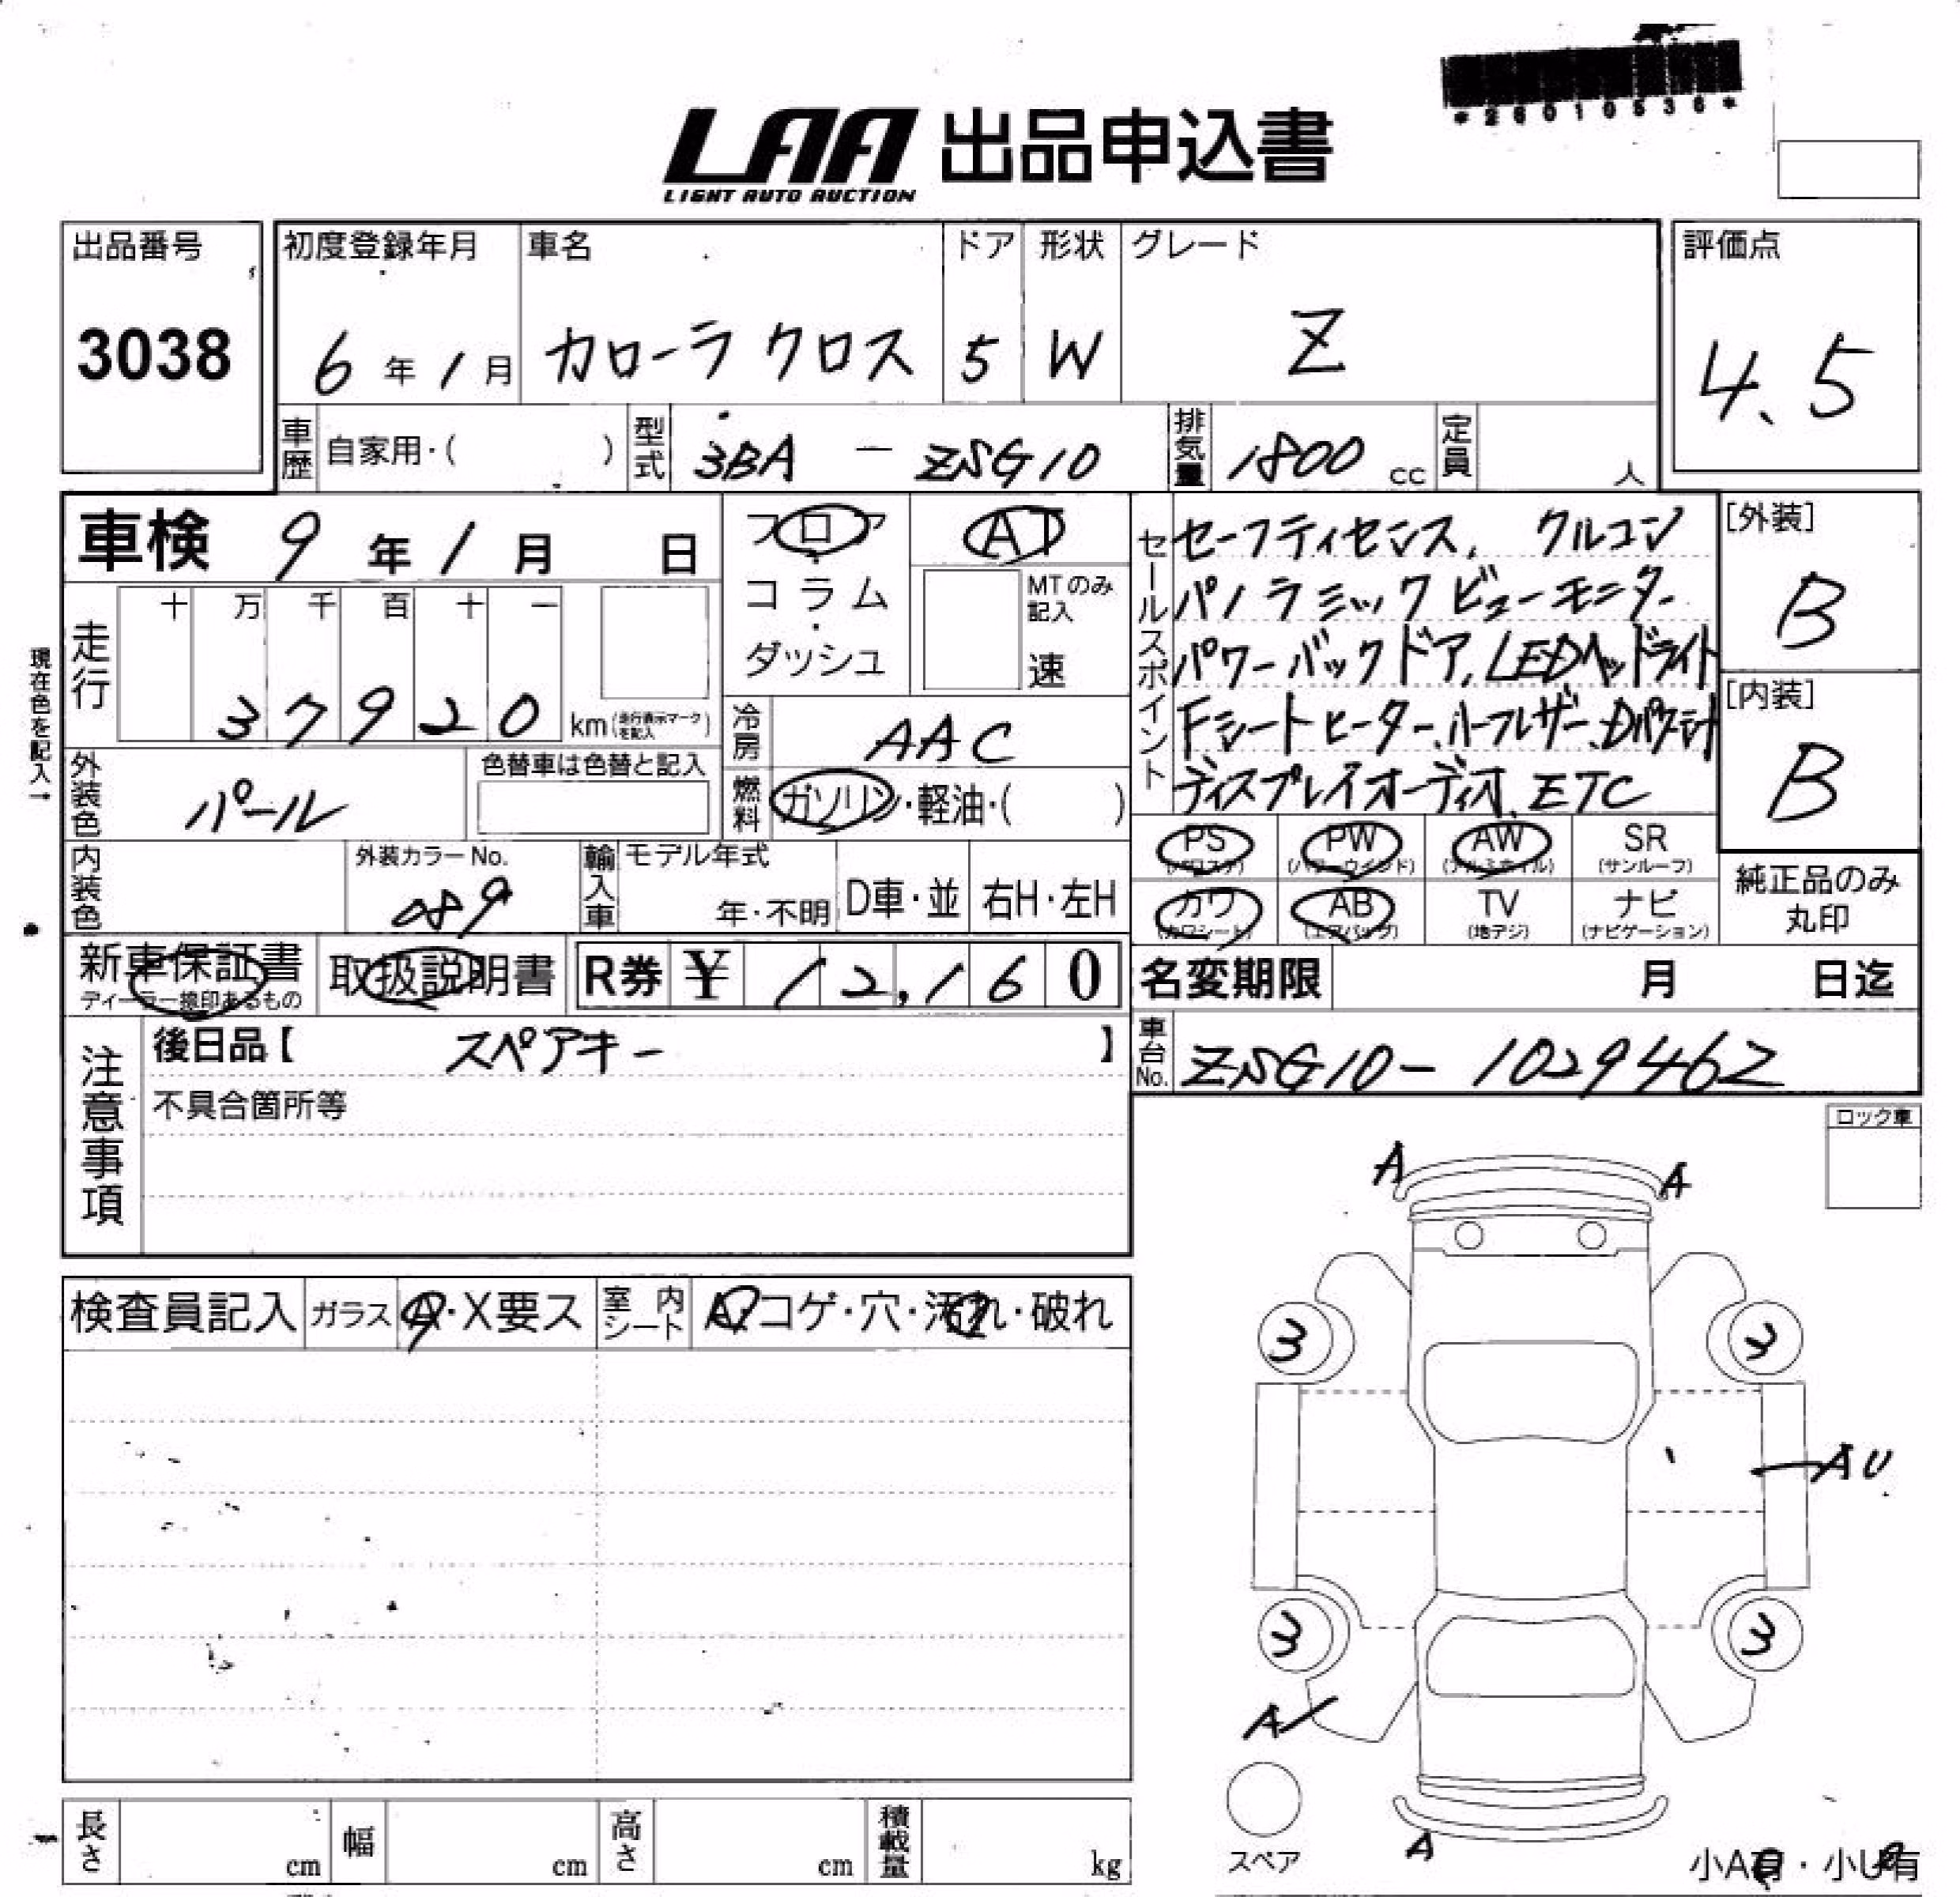 *26010536*
LAA 出品申込書
LIGHT AUTO AUCTION
出品番号 3038
初度登録年月 6年1月
車名 カローラ クロス
ドア 5
形状 W
グレード Z
評価点 4.5
車歴 自家用・( )
型式 3BA － ZSG10
排気量 1800 cc
定員 人
車検 9年1月 日
フロア・コラム・ダッシュ
AT
MTのみ記入 速
現在色を記入→
走行 十 万 千 百 十 一
37920 km(走行表示マークを記入)
冷房 AAC
外装色 パール
色替車は色替と記入
燃料 ガソリン・軽油・( )
セールスポイント
セーフティセンス, クルコン
パノラミックビューモニター
パワーバックドア, LEDヘッドライト
Fシートヒーター、ハーフレザー、Dパワーシート
ディスプレイオーディオ、ETC
[外装] B
[内装] B
内装色
外装カラーNo. 089
輸入車 モデル年式 年・不明
D車・並
右H・左H
PS (パワステ)
PW (パワーウインド)
AW (アルミホイル)
SR (サンルーフ)
カワ (カワシート)
AB (エアバッグ)
TV (地デジ)
ナビ (ナビゲーション)
純正品のみ丸印
新車保証書 ディーラー捺印あるもの
取扱説明書
R券 ¥ 12,160
名変期限 月 日迄
注意事項
後日品【 スペアキー 】
不具合箇所等
車台No. ZSG10-1029462
ロック車
A A
検査員記入
ガラス A・X要ス
室内シート A・コゲ・穴・汚れ・破れ
3 3
AU
3 3
A
スペア
A
小A有・小U有
長さ cm
幅 cm
高さ cm
積載量 kg